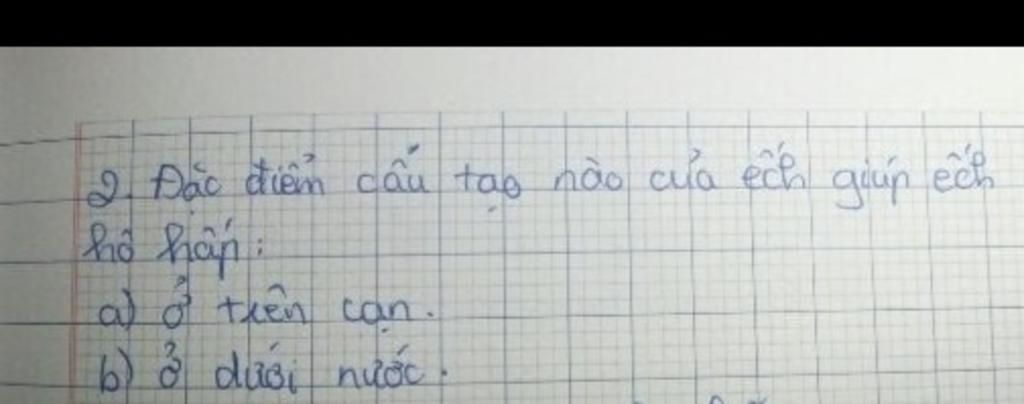 2. Đặc điểm cấu tạo nào của ếch giúp ếch
hô hấp:
a) ở trên cạn.
b) ở dưới nước.